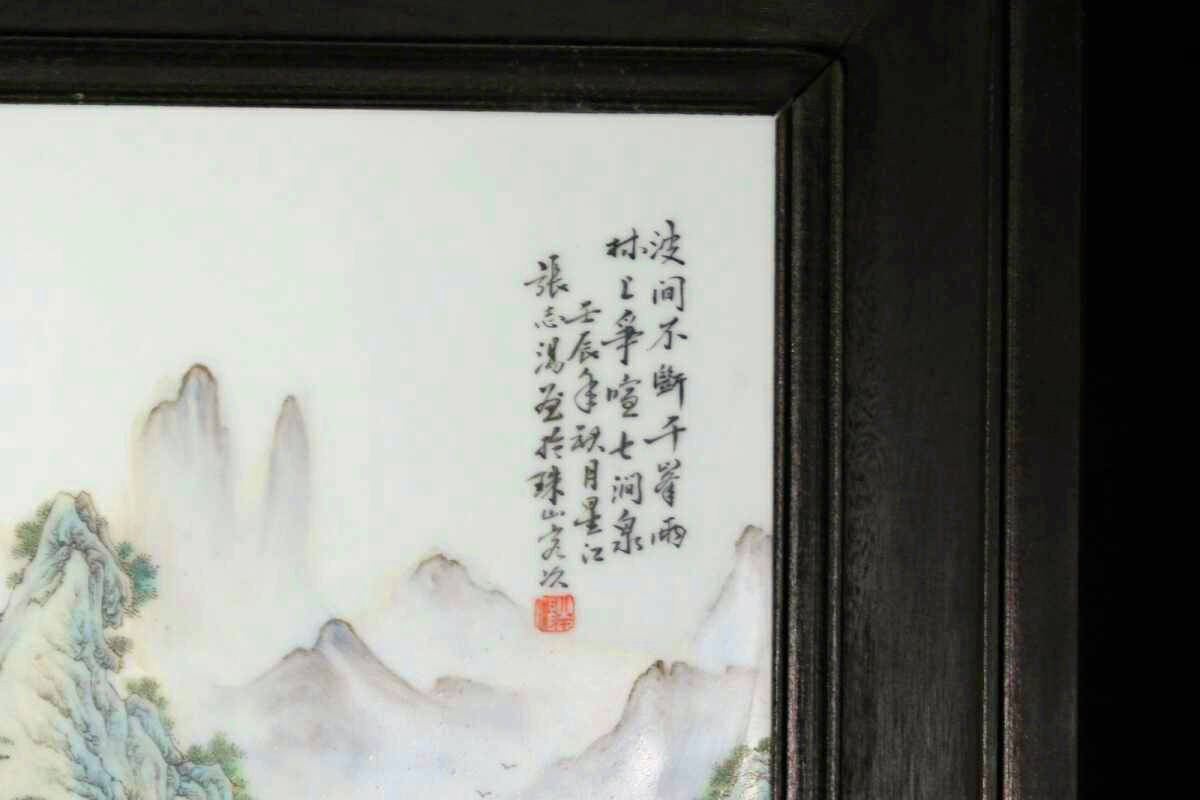 波间不斷千峯雨
林上爭喧七澗泉
壬辰年秋月星江
張志湯画於珠山客次